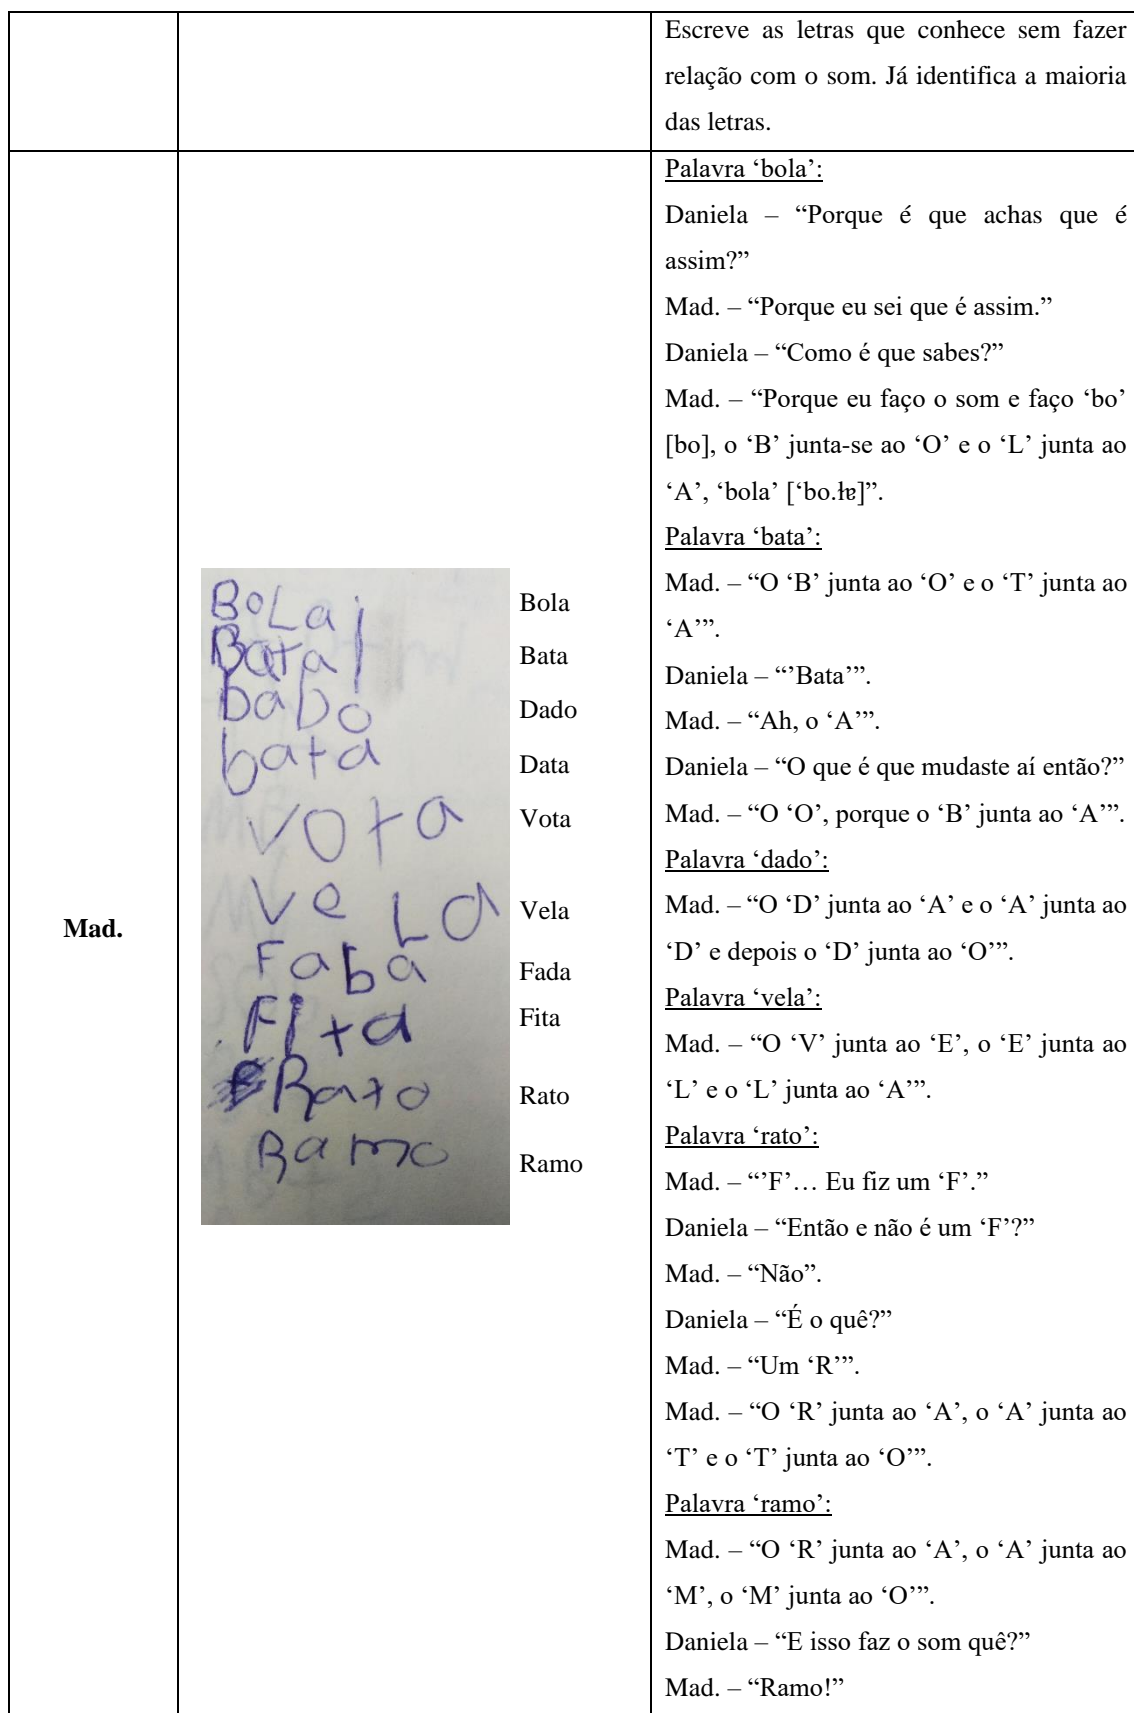 Escreve as letras que conhece sem fazer
relação com o som. Já identifica a maioria
das letras.
Mad.
BoLa
Bata
babo
bata
vota
ve La
Faba
Fita
Rato
Ramo
Bola
Bata
Dado
Data
Vota
Vela
Fada
Fita
Rato
Ramo
Palavra ‘bola’:
Daniela – “Porque é que achas que é
assim?”
Mad. – “Porque eu sei que é assim.”
Daniela – “Como é que sabes?”
Mad. – “Porque eu faço o som e faço ‘bo’
[bo], o ‘B’ junta-se ao ‘O’ e o ‘L’ junta ao
‘A’, ‘bola’ [‘bo.łɐ]”.
Palavra ‘bata’:
Mad. – “O ‘B’ junta ao ‘O’ e o ‘T’ junta ao
‘A’”.
Daniela – “’Bata’”.
Mad. – “Ah, o ‘A’”.
Daniela – “O que é que mudaste aí então?”
Mad. – “O ‘O’, porque o ‘B’ junta ao ‘A’”.
Palavra ‘dado’:
Mad. – “O ‘D’ junta ao ‘A’ e o ‘A’ junta ao
‘D’ e depois o ‘D’ junta ao ‘O’”.
Palavra ‘vela’:
Mad. – “O ‘V’ junta ao ‘E’, o ‘E’ junta ao
‘L’ e o ‘L’ junta ao ‘A’”.
Palavra ‘rato’:
Mad. – “’F’… Eu fiz um ‘F’.”
Daniela – “Então e não é um ‘F’?”
Mad. – “Não”.
Daniela – “É o quê?”
Mad. – “Um ‘R’”.
Mad. – “O ‘R’ junta ao ‘A’, o ‘A’ junta ao
‘T’ e o ‘T’ junta ao ‘O’”.
Palavra ‘ramo’:
Mad. – “O ‘R’ junta ao ‘A’, o ‘A’ junta ao
‘M’, o ‘M’ junta ao ‘O’”.
Daniela – “E isso faz o som quê?”
Mad. – “Ramo!”